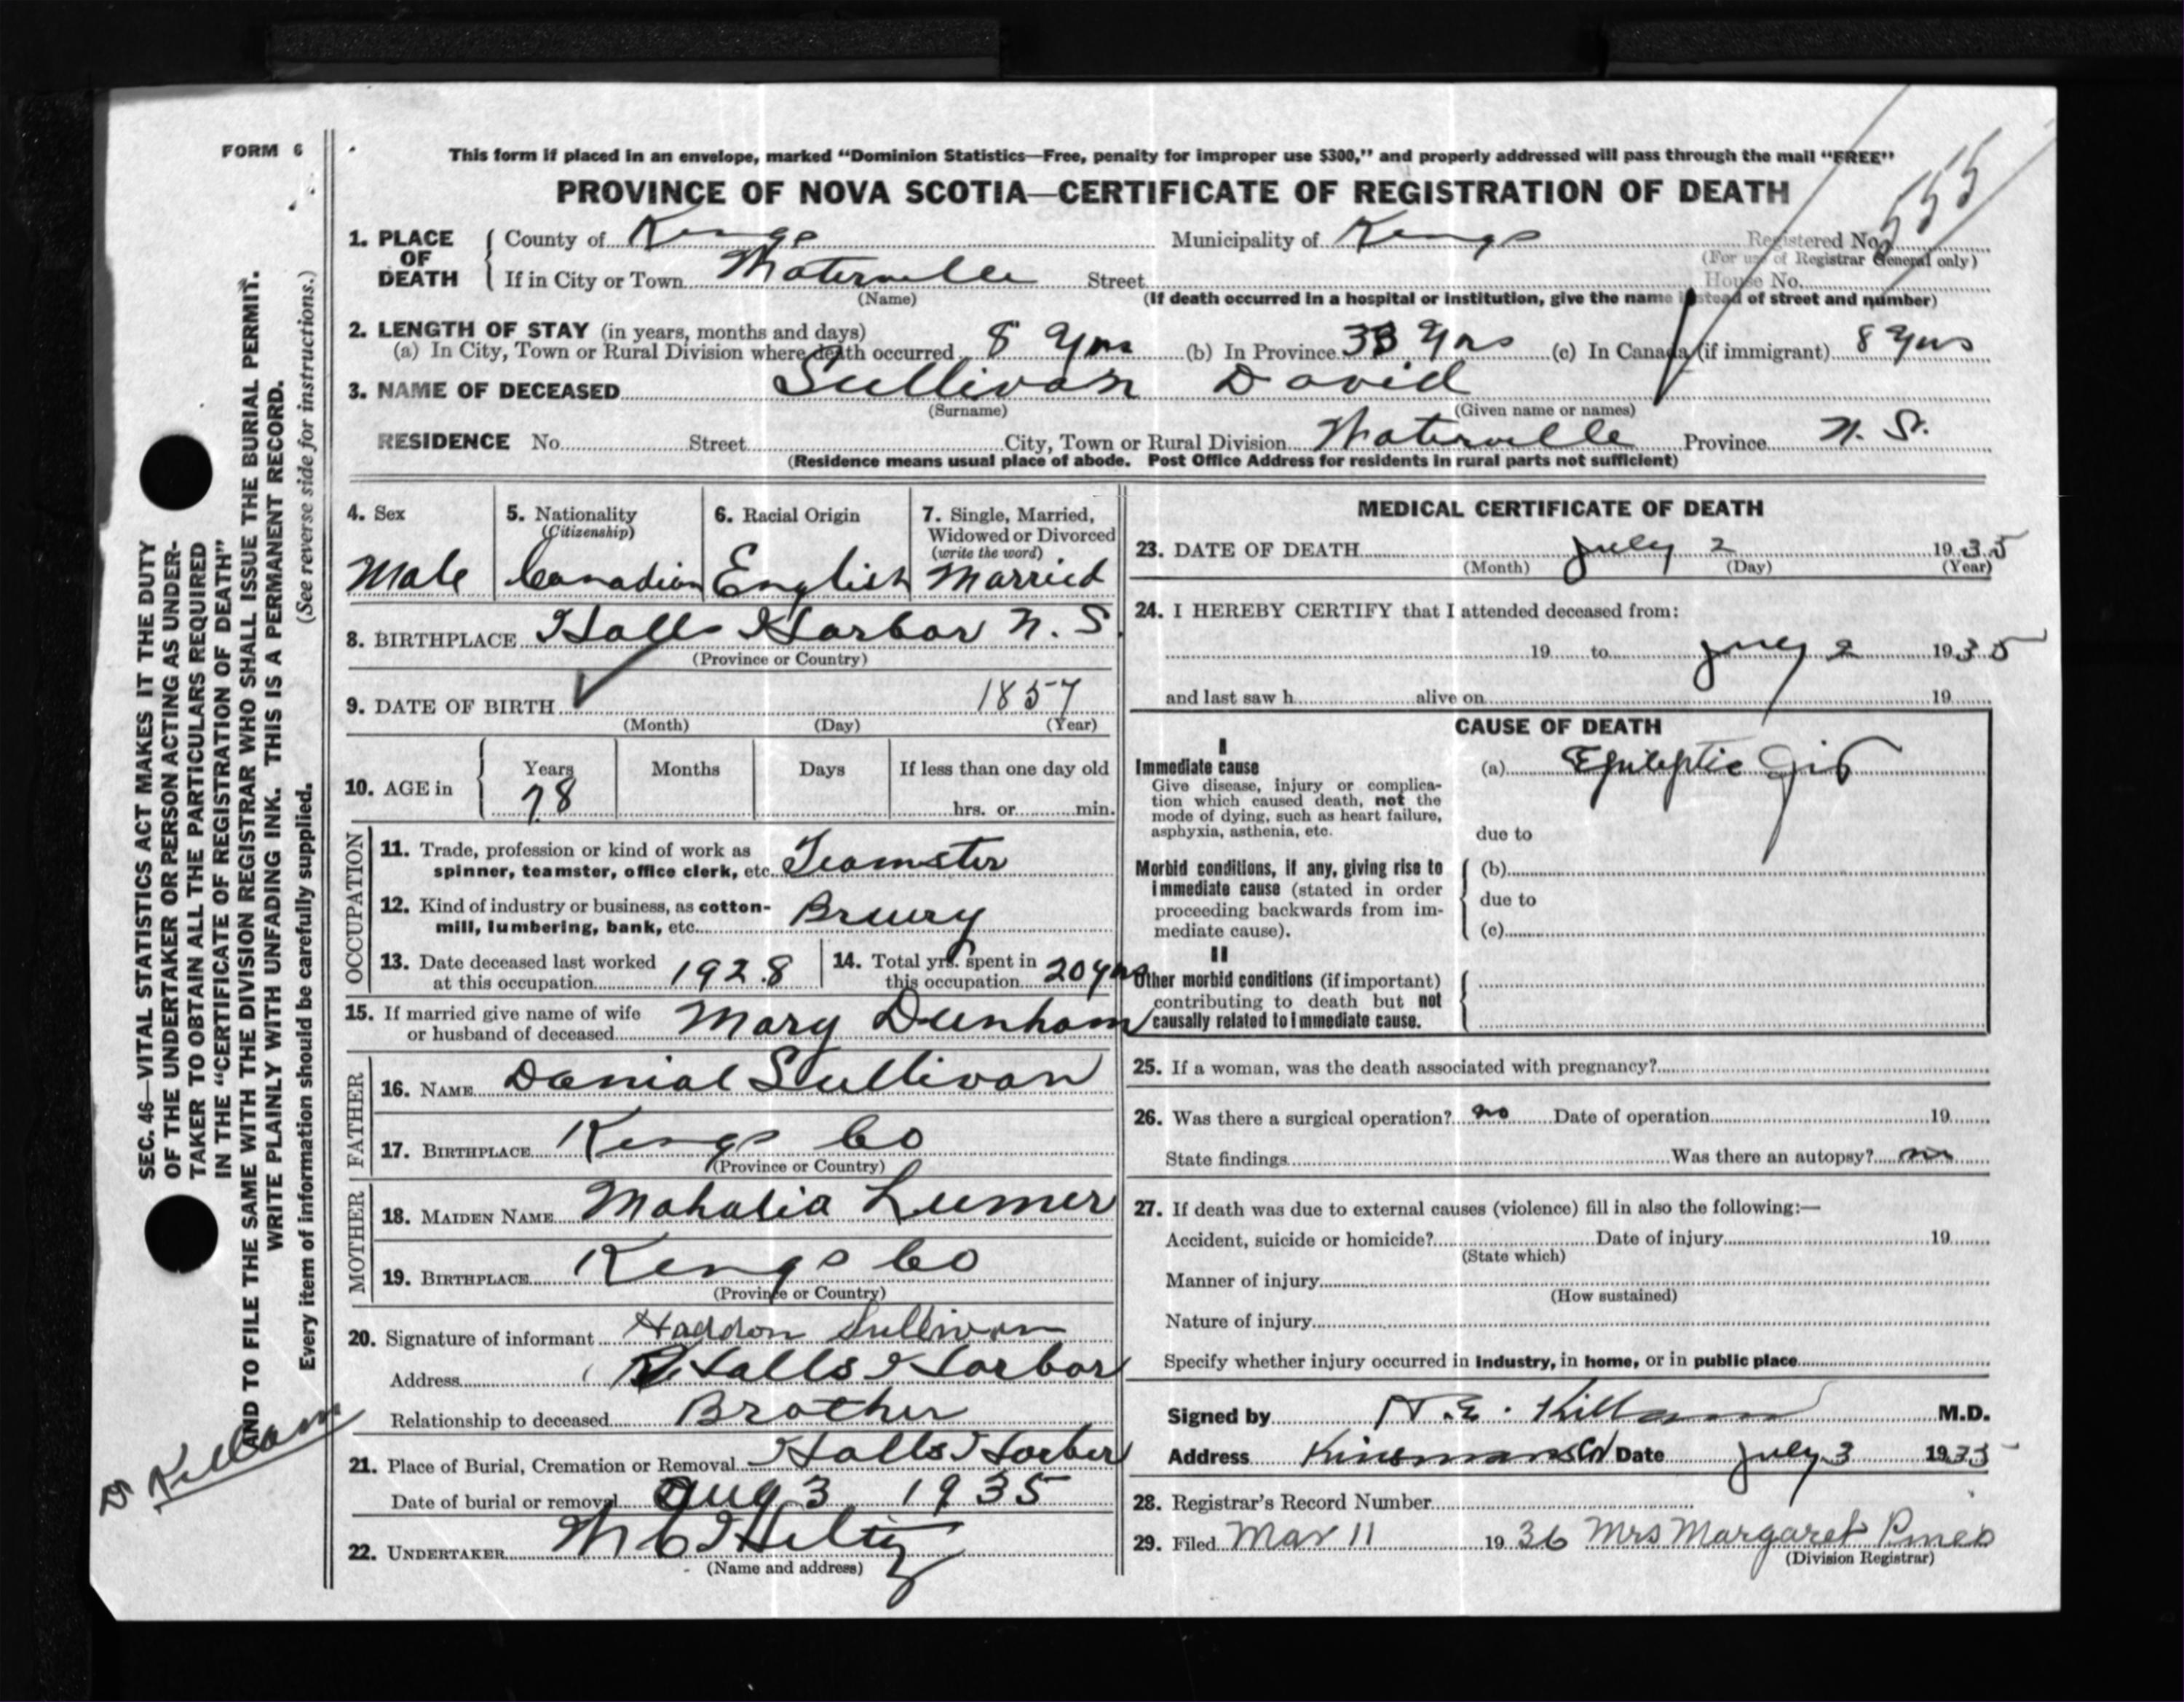 FORM 6
This form if placed in an envelope, marked "Dominion Statistics—Free, penalty for improper use $300," and properly addressed will pass through the mail "FREE"
PROVINCE OF NOVA SCOTIA—CERTIFICATE OF REGISTRATION OF DEATH
1. PLACE OF DEATH County of Kings Municipality of Kings Registered No.
(For use of Registrar General only)
If in City or Town Waterville Street House No.
(Name) (If death occurred in a hospital or institution, give the name instead of street and number)
2. LENGTH OF STAY (in years, months and days)
(a) In City, Town or Rural Division where death occurred 8 yrs (b) In Province 33 yrs (c) In Canada (if immigrant) 8 yrs
3. NAME OF DECEASED Sullivan David
(Surname) (Given name or names)
RESIDENCE No. Street City, Town or Rural Division Waterville Province N. S.
(Residence means usual place of abode. Post Office Address for residents in rural parts not sufficient)
4. Sex 5. Nationality 6. Racial Origin 7. Single, Married,
(Citizenship) Widowed or Divorced
(write the word)
Male Canadian English Married
8. BIRTHPLACE Halls Harbor N. S.
(Province or Country)
9. DATE OF BIRTH 1857
(Month) (Day) (Year)
10. AGE in Years Months Days If less than one day old
78 hrs. or min.
OCCUPATION
11. Trade, profession or kind of work as
spinner, teamster, office clerk, etc. Teamster
12. Kind of industry or business, as cotton-
mill, lumbering, bank, etc. Brewry
13. Date deceased last worked 14. Total yrs. spent in
at this occupation 1928 this occupation 20 yrs
15. If married give name of wife
or husband of deceased Mary Dunham
FATHER
16. NAME Danial Sullivan
17. BIRTHPLACE Kings Co
(Province or Country)
MOTHER
18. MAIDEN NAME Mahalia
19. BIRTHPLACE Kings Co
(Province or Country)
20. Signature of informant Haddon Sullivan
Address Halls Harbor
Relationship to deceased Brother
21. Place of Burial, Cremation or Removal Halls Harber
Date of burial or removal Aug 3 1935
22. UNDERTAKER
(Name and address)
MEDICAL CERTIFICATE OF DEATH
23. DATE OF DEATH July 2 1935
(Month) (Day) (Year)
24. I HEREBY CERTIFY that I attended deceased from:
19 to July 2 1935
and last saw h alive on 19
CAUSE OF DEATH
I
Immediate cause
Give disease, injury or complica-
tion which caused death, not the
mode of dying, such as heart failure,
asphyxia, asthenia, etc.
(a) Epileptic
due to
Morbid conditions, if any, giving rise to
immediate cause (stated in order
proceeding backwards from im-
mediate cause).
(b)
due to
(c)
II
Other morbid conditions (if important)
contributing to death but not
causally related to immediate cause.
25. If a woman, was the death associated with pregnancy?
26. Was there a surgical operation? no Date of operation 19
State findings Was there an autopsy? no
27. If death was due to external causes (violence) fill in also the following:—
Accident, suicide or homicide? Date of injury 19
(State which)
Manner of injury
(How sustained)
Nature of injury
Specify whether injury occurred in industry, in home, or in public place
Signed by H.E. Killam M.D.
Address Date July 3 1935
28. Registrar's Record Number
29. Filed Mar 11 1936 Mrs Margaret Pineo
(Division Registrar)
SEC. 46—VITAL STATISTICS ACT MAKES IT THE DUTY
OF THE UNDERTAKER OR PERSON ACTING AS UNDER-
TAKER TO OBTAIN ALL THE PARTICULARS REQUIRED
IN THE "CERTIFICATE OF REGISTRATION OF DEATH"
AND TO FILE THE SAME WITH THE DIVISION REGISTRAR WHO SHALL ISSUE THE BURIAL PERMIT.
WRITE PLAINLY WITH UNFADING INK. THIS IS A PERMANENT RECORD.
Every item of information should be carefully supplied. (See reverse side for instructions.)
Dr Killam